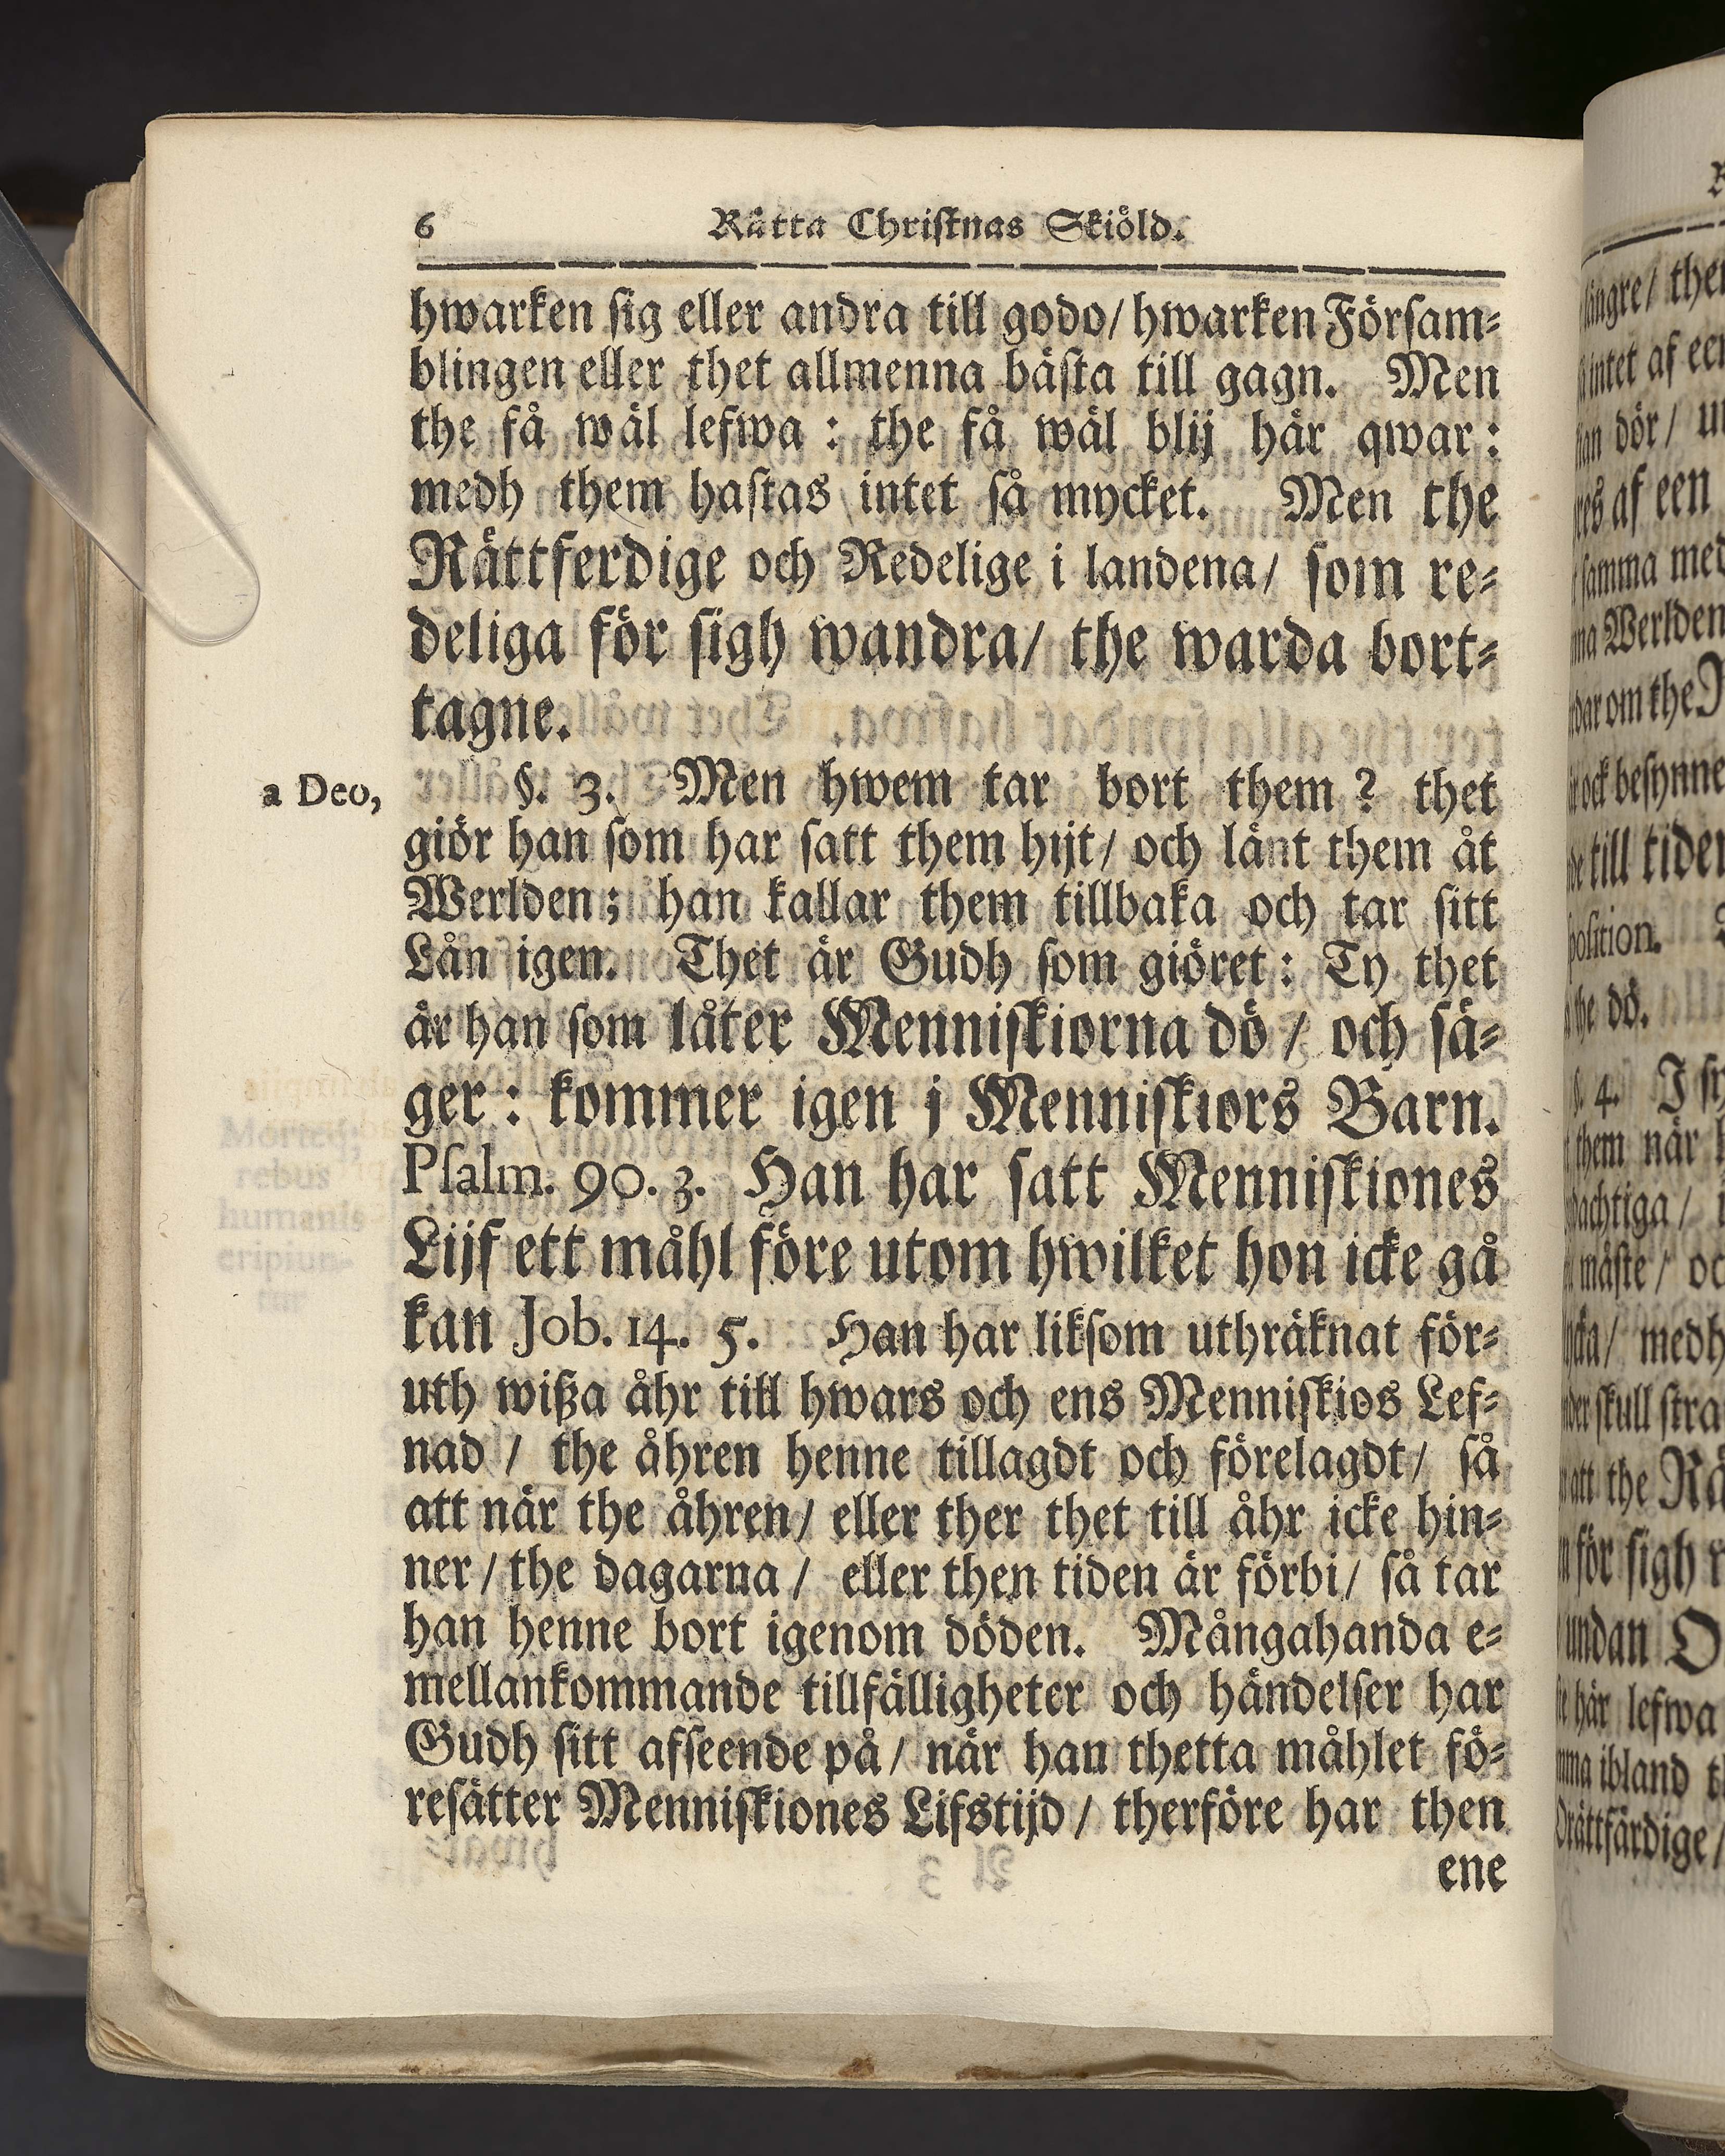 6 Rätta Christnas Skiöld.
hwarken sig eller andra till godo/ hwarken Försam-
blingen eller thet allmenna bästa till gagn. Men
the få wäl lefwa : the få wäl blij här qwar :
medh them hastas intet så mycket. Men the
Rättferdige och Redelige i landena/ som re-
deliga för sigh wandra/ the warda bort-
tagne.
a Deo,
§. 3. Men hwem tar bort them ? thet
giör han som har satt them hijt/ och länt them åt
Werlden; han kallar them tillbaka och tar sitt
Lån igen. Thet är Gudh som giöret : Ty thet
är han som låter Menniskiorna dö / och sä-
ger : kommer igen j Menniskiors Barn.
Psalm. 90. 3. Han har satt Menniskiones
Lijf ett måhl före utom hwilket hon icke gå
kan Job. 14. 5. Han har liksom uthräknat för-
uth wißa åhr till hwars och ens Menniskios Lef-
nad / the åhren henne tillagdt och förelagdt/ så
att när the åhren/ eller ther thet till åhr icke hin-
ner / the dagarna / eller then tiden är förbi/ så tar
han henne bort igenom döden. Mångahanda e-
mellankommande tillfälligheter och händelser har
Gudh sitt afseende på/ när han thetta måhlet fö-
resätter Menniskiones Lifstijd / therföre har then
ene